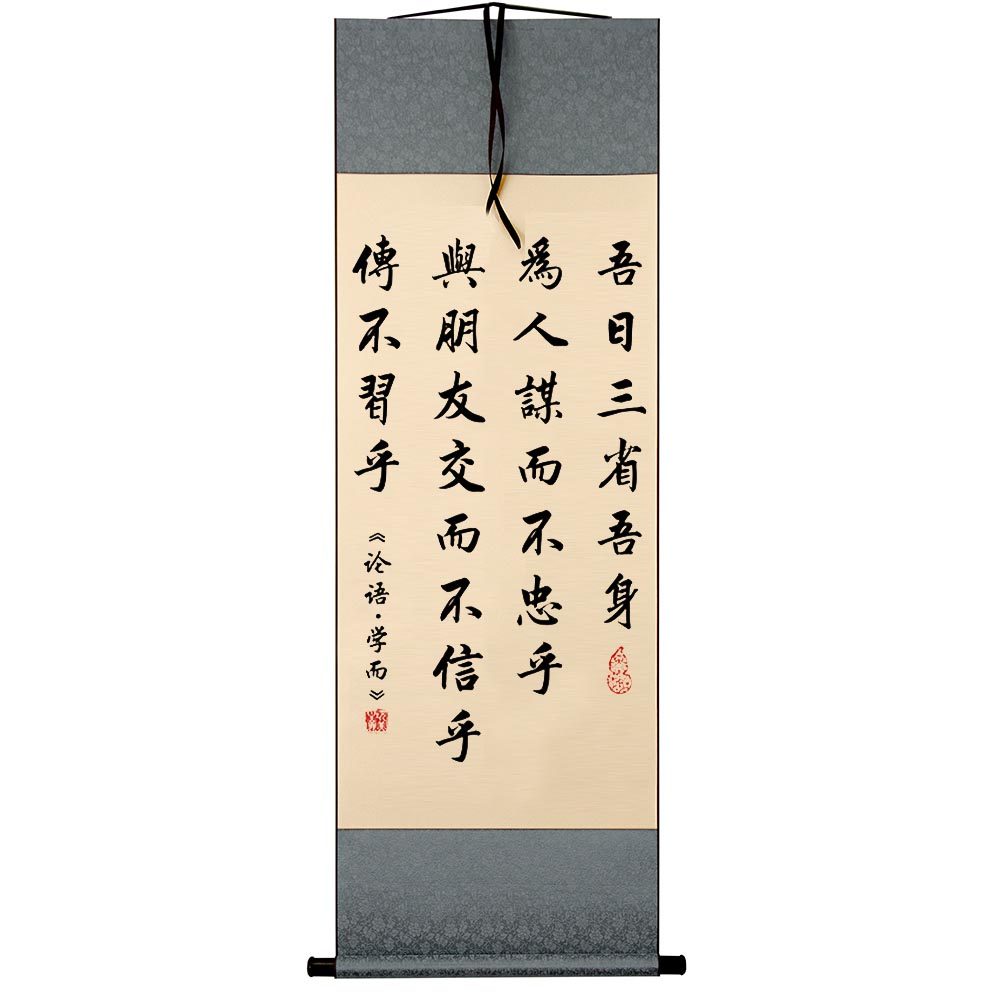 吾日三省吾身
為人謀而不忠乎
與朋友交而不信乎
傳不習乎《论语·学而》